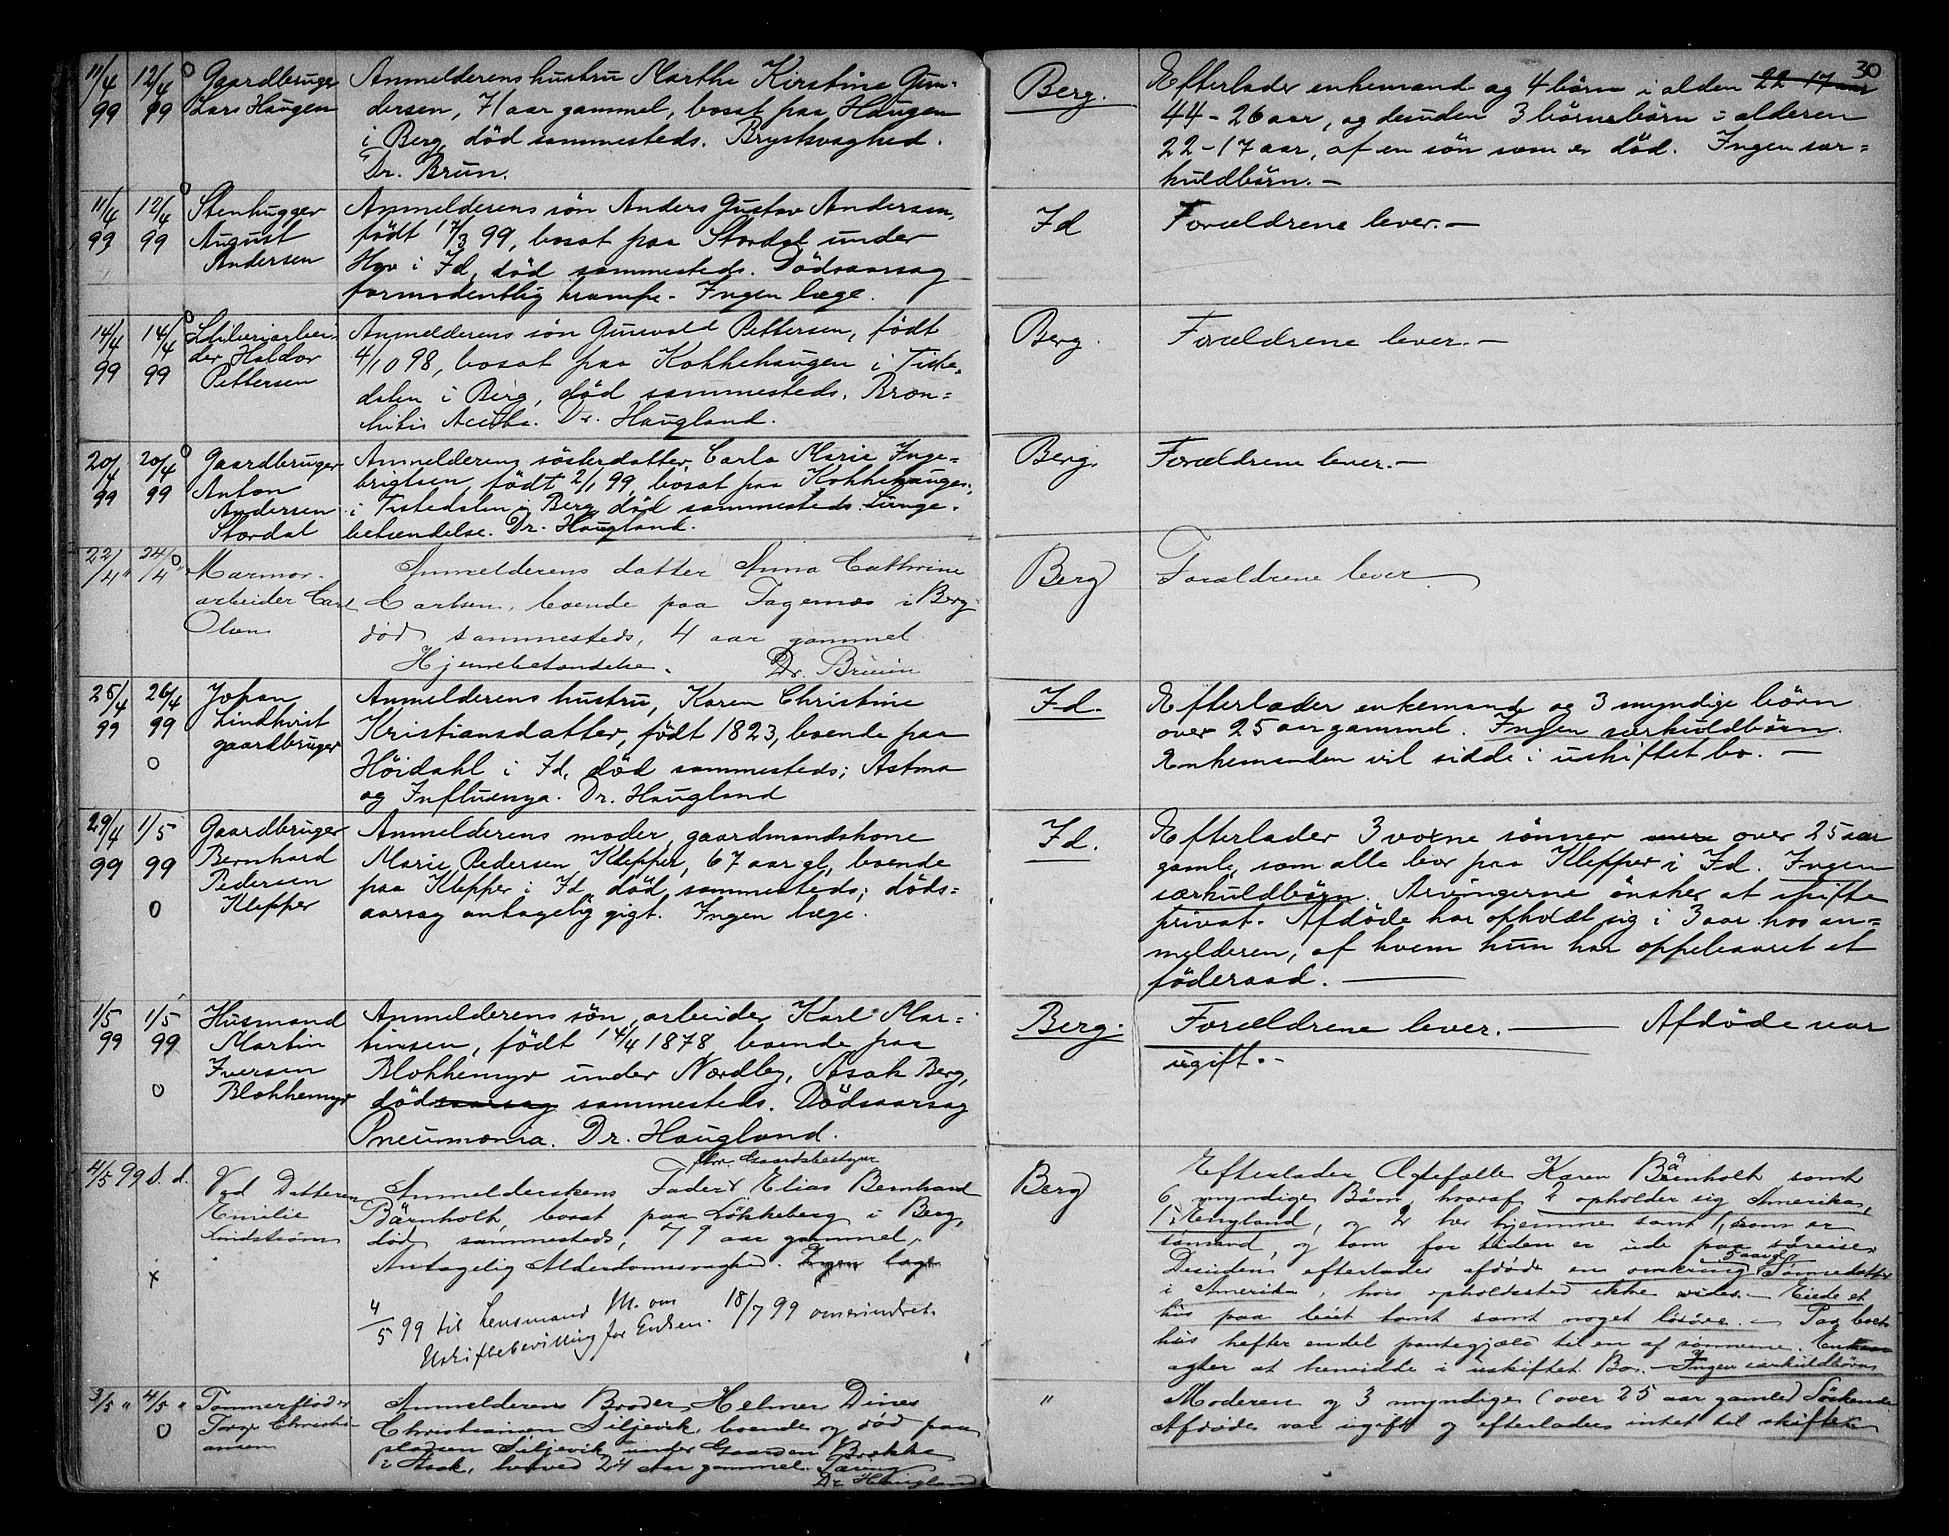 30
11/4 99 12/4 99 o Gaardbruger
Lars Haugen
Anmelderens hustru Marthe Kirstine Gun-
dersen, 71 aar gammel, bosat paa Haugen
i Berg, död sammesteds. Brystsvaghed.
Dr. Brun.
Berg.
Efterlader enkemand og 4 börn i alden 22-17 aar
44-26 aar, og desuden 3 börnebörn i alderen
22-17 aar, af en sön som er död. Ingen sær=
kuldbörn.-
11/4 99 12/4 99 o Stenhugger
August
Andersen
Anmelderens sön Anders Gustav Andersen,
födt 17/3 99, bosat paa Stordal under
Hov i Id, död sammesteds. Dödsaarsag
formodentlig krampe- Ingen læge.
Id
Forældrene lever.-
14/4 99 14/4 99 o Sliberiarbei-
der Haldor
Pettersen
Anmelderens sön Gunvald Pettersen, födt
4/10 98, bosat paa Kokkehaugen i Tiste-
dalen i Berg, död sammesteds. Bron=
kitis Acuta. Dr. Haugland.
Berg.
Forældrene lever.-
20/4 99 20/4 99 o Gaardbruger
Anton
Andersen
Stordal
Anmelderens sösterdatter, Carla Marie Inge=
brigtsen, födt 2/1 99, bosat paa Kokkehaugen,
i Tistedalen i Berg, död sammesteds. Lunge-
betændelse. Dr. Haugland.
Berg.
Forældrene lever.-
22/4 " 24/4 " o Marmor-
arbeider Carl
Olsen
Anmelderens datter Anna Cathrine
Carlsen, boende paa Tagemos i Berg
död sammesteds, 4 aar gammel.
Hjernebetændelse. Dr. Bruun
Berg
Forældrene lever
25/4 99 26/4 99 o Johan
Lindkvist
gaardbruger
Anmelderens hustru, Karen Christine
Kristiansdatter, födt 1823, boende paa
Höidahl i Id, död sammesteds; Astma
og Influenza. Dr. Haugland
Id.
Efterlader enkemand og 3 myndige börn
over 25 aar gammel. Ingen særkuldbörn.
Enkemanden vil sidde i uskiftet bo.-
29/4 99 1/5 99 o Gaardbruger
Bernhard
Pedersen
Klepper
Anmelderens moder, gaardmandskone
Marie Pedersen Klepper, 67 aar gl, boende
paa Klepper i Id, död sammesteds; döds=
aarsag antagelig gigt. Ingen læge.
Id.
Efterlader 3 voxne sönner over 25 aar
gamle, som alle bor paa Klepper i Id. Ingen
særkuldbörn. Arvingerne önsker at skifte
privat. Afdöde har opholdt sig i 3 aar hos an=
melderen, af hvem hun har oppebaaret et
föderaad.
1/5 99 1/5 99 o Husmand
Martin
Iversen
Blokkemyr
Anmelderens sön, arbeider Karl Mar=
tinsen, födt 14/4 1878 boende paa
Blokkemyr under Nordby, Asak Berg,
dödsaarsag sammesteds. Dödsaarsag
Pneumonia. Dr. Haugland.
Berg.
Forældrene lever.- Afdöde var
ugift.-
4/5 99 S. d. x Ved Datteren
Emilie
Lindström
fhv. Gaardsbestyrer
Anmelderskens Fader Elias Bernhard
Bärnholt, bosat paa Lökkeberg i Berg,
död sammesteds, 79 aar gammel.
Antagelig Alderdomssvaghed. Ingen læge
4/5 99 til Lensmand M. om
Uskiftebevilling for Enken. 18/7 99 omerindret.
Berg
Efterlader Ægtefælle Karen Bärnholt samt
6 myndige Börn, hvoraf 2 opholder sig Amerika,
1 i England, og 2 her hjemme samt 1, som er
sömand, og som for tiden er ude paa söreise.
Desuden efterlader afdöde en omkring 5 aar gl. Sönnedatter
i Amerika, hvis opholdssted ikke vides.- Eiede et
hus paa leiet tomt samt noget lösöre.- Paa boets
hus hefter endel pantegjæld til en af sönnerne. Enken
agter at hensidde i uskiftet Bo.- Ingen særkuldbörn
3/5 " 4/5 " o Tömmerfloder
Christi-
ansen
Anmelderens Broder, Helmer Dines
Christiansen Siljevik, boende og död paa
pladsen Siljevik under Gaarden Brekke
i Asak, hvorved 24 aar gammel. Tæring
Dr. Haugland
"
Moderen og 3 myndige (over 25 aar gamle) Söskende
Afdöde var ugift og efterlades intet til skifte